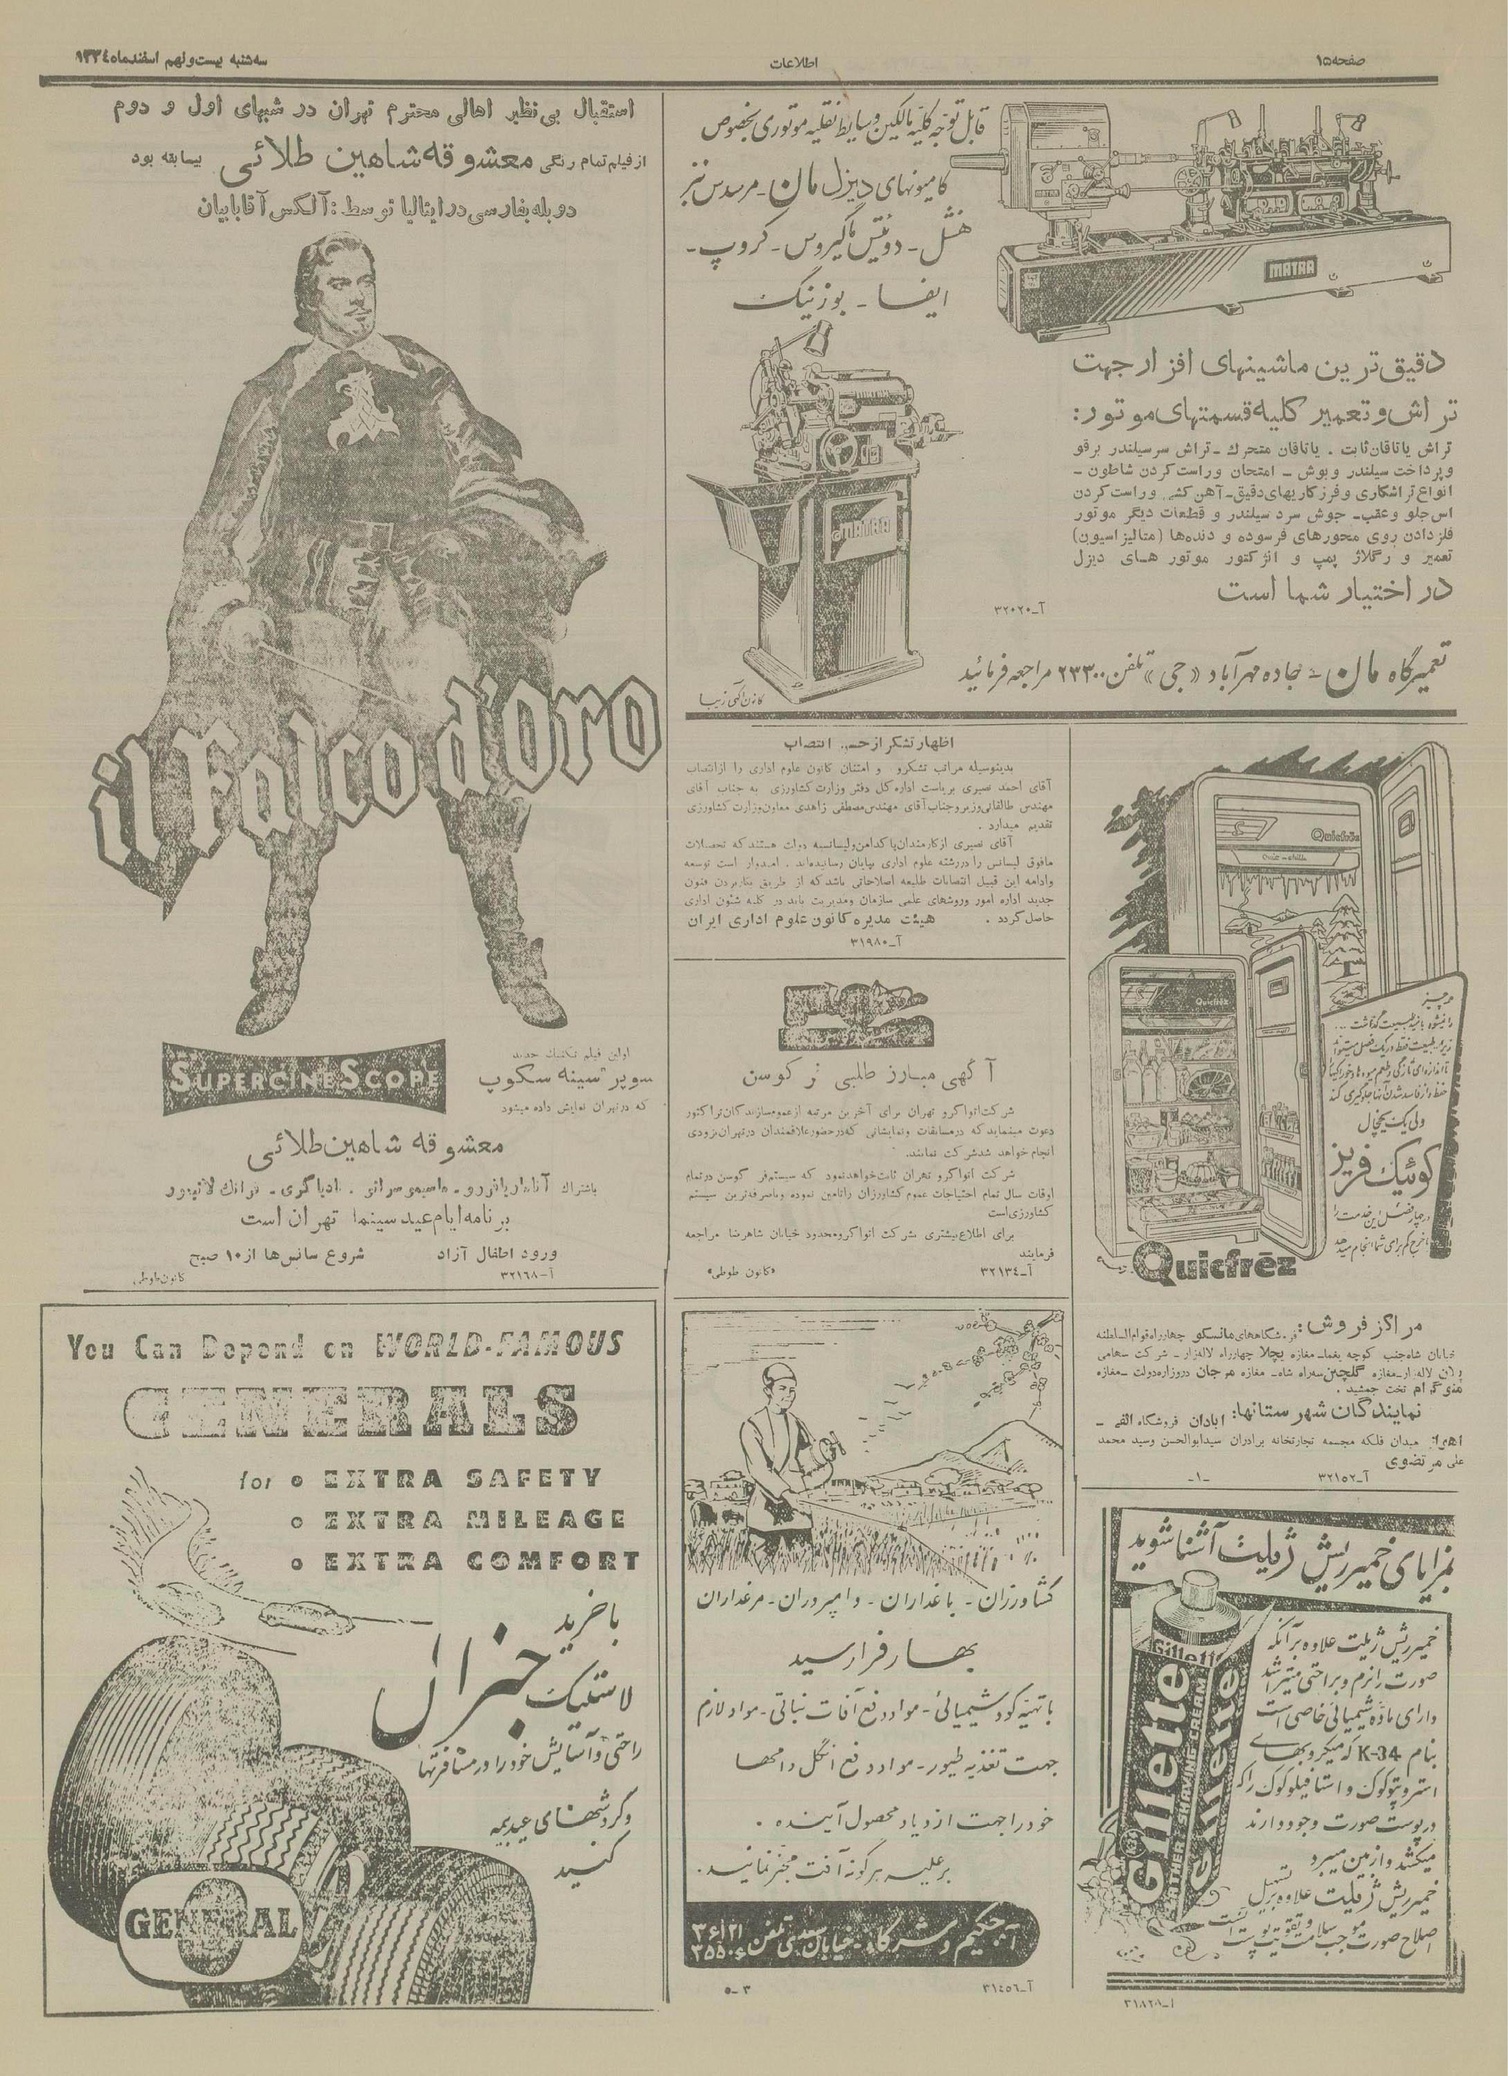 صفحه ۱۵
اطلاعات
سه‌شنبه بیست و نهم اسفندماه ۱۳۳۴
قابل توجه کلیه مالکین وسایط نقلیه موتوری بخصوص
کامیونهای دیزل مان - مرسدس بنز
هنشل - دویتس ماگیروس - کروپ -
ایفا - بوزینگ
MATRA
دقیق‌ترین ماشینهای افزار جهت
تراش و تعمیر کلیه قسمتهای موتور:
تراش یاتاقان ثابت . یاتاقان متحرك - تراش سرسیلندر برقو
و پرداخت سیلندر و بوش - امتحان وراست کردن شاطون -
انواع تراشکاری و فرزکاریهای دقیق - آهن‌کشی وراست کردن
اس جلو و عقب - جوش سرد سیلندر و قطعات دیگر موتور
فلز دادن روی محورهای فرسوده و دنده‌ها (متالیزاسیون)
تعمیر و رگلاژ پمپ و انژکتور موتور هـای دیزل
در اختیار شما است
آ-۳۲۰۲۰
MATRA
تعمیرگاه مان - جاده مهرآباد «جی» تلفن ۲۳۳۰۰ مراجعه فرمائید
کانون آگهی زیبا
استقبال بی‌نظیر اهالی محترم تهران در شبهای اول و دوم
از فیلم تمام رنگی معشوقه شاهین طلائی بیسابقه بود
دوبله بفارسی در ایتالیا توسط : آلکس آقابابیان
il Falco d'oro
SUPERCINESCOPE
اولین فیلم تکنیك جدید
سوپر سینه سکوپ
که در تهران نمایش داده میشود
معشوقه شاهین طلائی
باشتراك
برنامه ایام عید سینما تهران است
ورود اطفال آزاد شروع سانس‌ها از ۱۰ صبح
آ-۳۲۱۶۸ کانون طوطی
اظهار تشکر از حسن انتصاب
بدینوسیله مراتب تشکر و امتنان کانون علوم اداری را از انتصاب
آقای احمد نصیری بریاست اداره کل دفتر وزارت کشاورزی به جناب آقای
مهندس طالقانی وزیر و جناب آقای مهندس مصطفی زاهدی معاون وزارت کشاورزی
تقدیم میدارد .
آقای نصیری از کارمندان پاکدامن و لیسانسیه دولت هستند که تحصیلات
مافوق لیسانس را در رشته علوم اداری بپایان رسانیده‌اند . امیدوار است توسعه
و ادامه این قبیل انتصابات طلیعه اصلاحاتی باشد که از طریق بکار بردن فنون
جدید اداره امور و روشهای علمی سازمان و مدیریت باید در کلیه شئون اداری
حاصل گردد . هیئت مدیره کانون علوم اداری ایران
آ-۳۱۹۸۰
آگهی مبارز طلبی فرگوسن
شرکت اتواگرو تهران برای آخرین مرتبه از عموم سازندگان تراکتور
دعوت مینماید که در مسابقات و نمایشاتی که در حضور علاقمندان در تهران بزودی
انجام خواهد شد شرکت نمایند.
شرکت اتواگرو تهران ثابت خواهد نمود که سیستم فرگوسن در تمام
اوقات سال تمام احتیاجات عموم کشاورزان را تامین نموده و با صرفه‌ترین سیستم
کشاورزی است
برای اطلاع بیشتری بشرکت اتواگرو محدود خیابان شاهرضا مراجعه
فرمایند
آ-۳۲۱۳۴ «کانون طوطی»
Quicfrēz
Quicfrez
هر چیز
را نمیشود بامید طبیعت گذاشت ...
زیرا در طبیعت فقط در یک فصل میتواند
تا اندازه‌ای تازگی و طعم میوه‌ها و خوراکیها
حفظ و از فاسد شدن آنها جلوگیری کند
ولی یک یخچال
کوئیک فریز
در چهار فصل این خدمت را
با خرج کم برای شما انجام میدهد
Quicfrēz
مراکز فروش : فروشگاههای مانسکو چهارراه قوام‌السلطنه
خیابان شاه جنب کوچه یغما - مغازه یچلا چهارراه لاله‌زار - شرکت سهامی
لاله‌زار - مغازه گلچین سه‌راه شاه - مغازه مرجان دروازه دولت - مغازه
تخت جمشید .
نمایندگان شهرستانها: آبادان فروشگاه الفی -
اهواز میدان فلکه مجسمه تجارتخانه برادران سیدابوالحسن وسید محمد
علی مرتضوی
آ-۳۲۱۵۲ -۱-
You Can Depend on WORLD-FAMOUS
GENERALS
for • EXTRA SAFETY
• EXTRA MILEAGE
• EXTRA COMFORT
با خرید
لاستیک جنرال
راحتی و آسایش خود را در مسافرتها
و گردشهای عید بیمه
کنید
GENERAL
کشاورزان - باغداران - دامپروران - مرغداران
بهار فرا رسید
با تهیه کود شیمیائی - مواد دفع آفات نباتی - مواد لازم
جهت تغذیه طیور - مواد دفع انگل دامها
خود را جهت ازدیاد محصول آینده .
بر علیه هرگونه آفت مجهز نمائید.
آ. حکیم و شرکاء - خیابان سعدی تلفن
آ-۳۱۴۵۶ ۳-۵
بمزایای خمیرریش ژیلت آشنا شوید
خمیرریش ژیلت علاوه بر آنکه
صورت را نرم و براحتی میتراشد
دارای ماده شیمیائی خاصی است
بنام K-34 که میکروبهای
استرپتوکوک و استافیلوکوک را که
در پوست صورت وجود دارند
میکشد و از بین میبرد
خمیرریش ژیلت علاوه بر تسهیل
اصلاح صورت موجب سلامت و تقویت پوست است
Gillette
Gillette
LATHER SHAVING CREAM